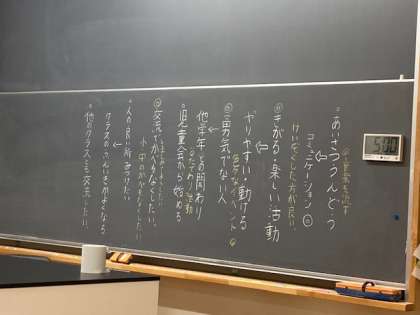 あいさつうんどう
コミュニケーション
けいぞくした方が良い
きがる・楽しい活動
やりやすい・動ける
勇気でない人
色々なイベント
他学年との関わり
たてわり活動
児童会から始める
交流でかべなくしたい。
人の良い所みつけたい
クラスのふんいきがよくなる
他のクラスとも交流したい。